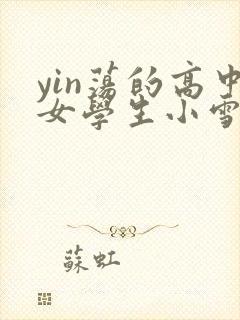 yin蕩的高中
女學生小雪
蘇虹